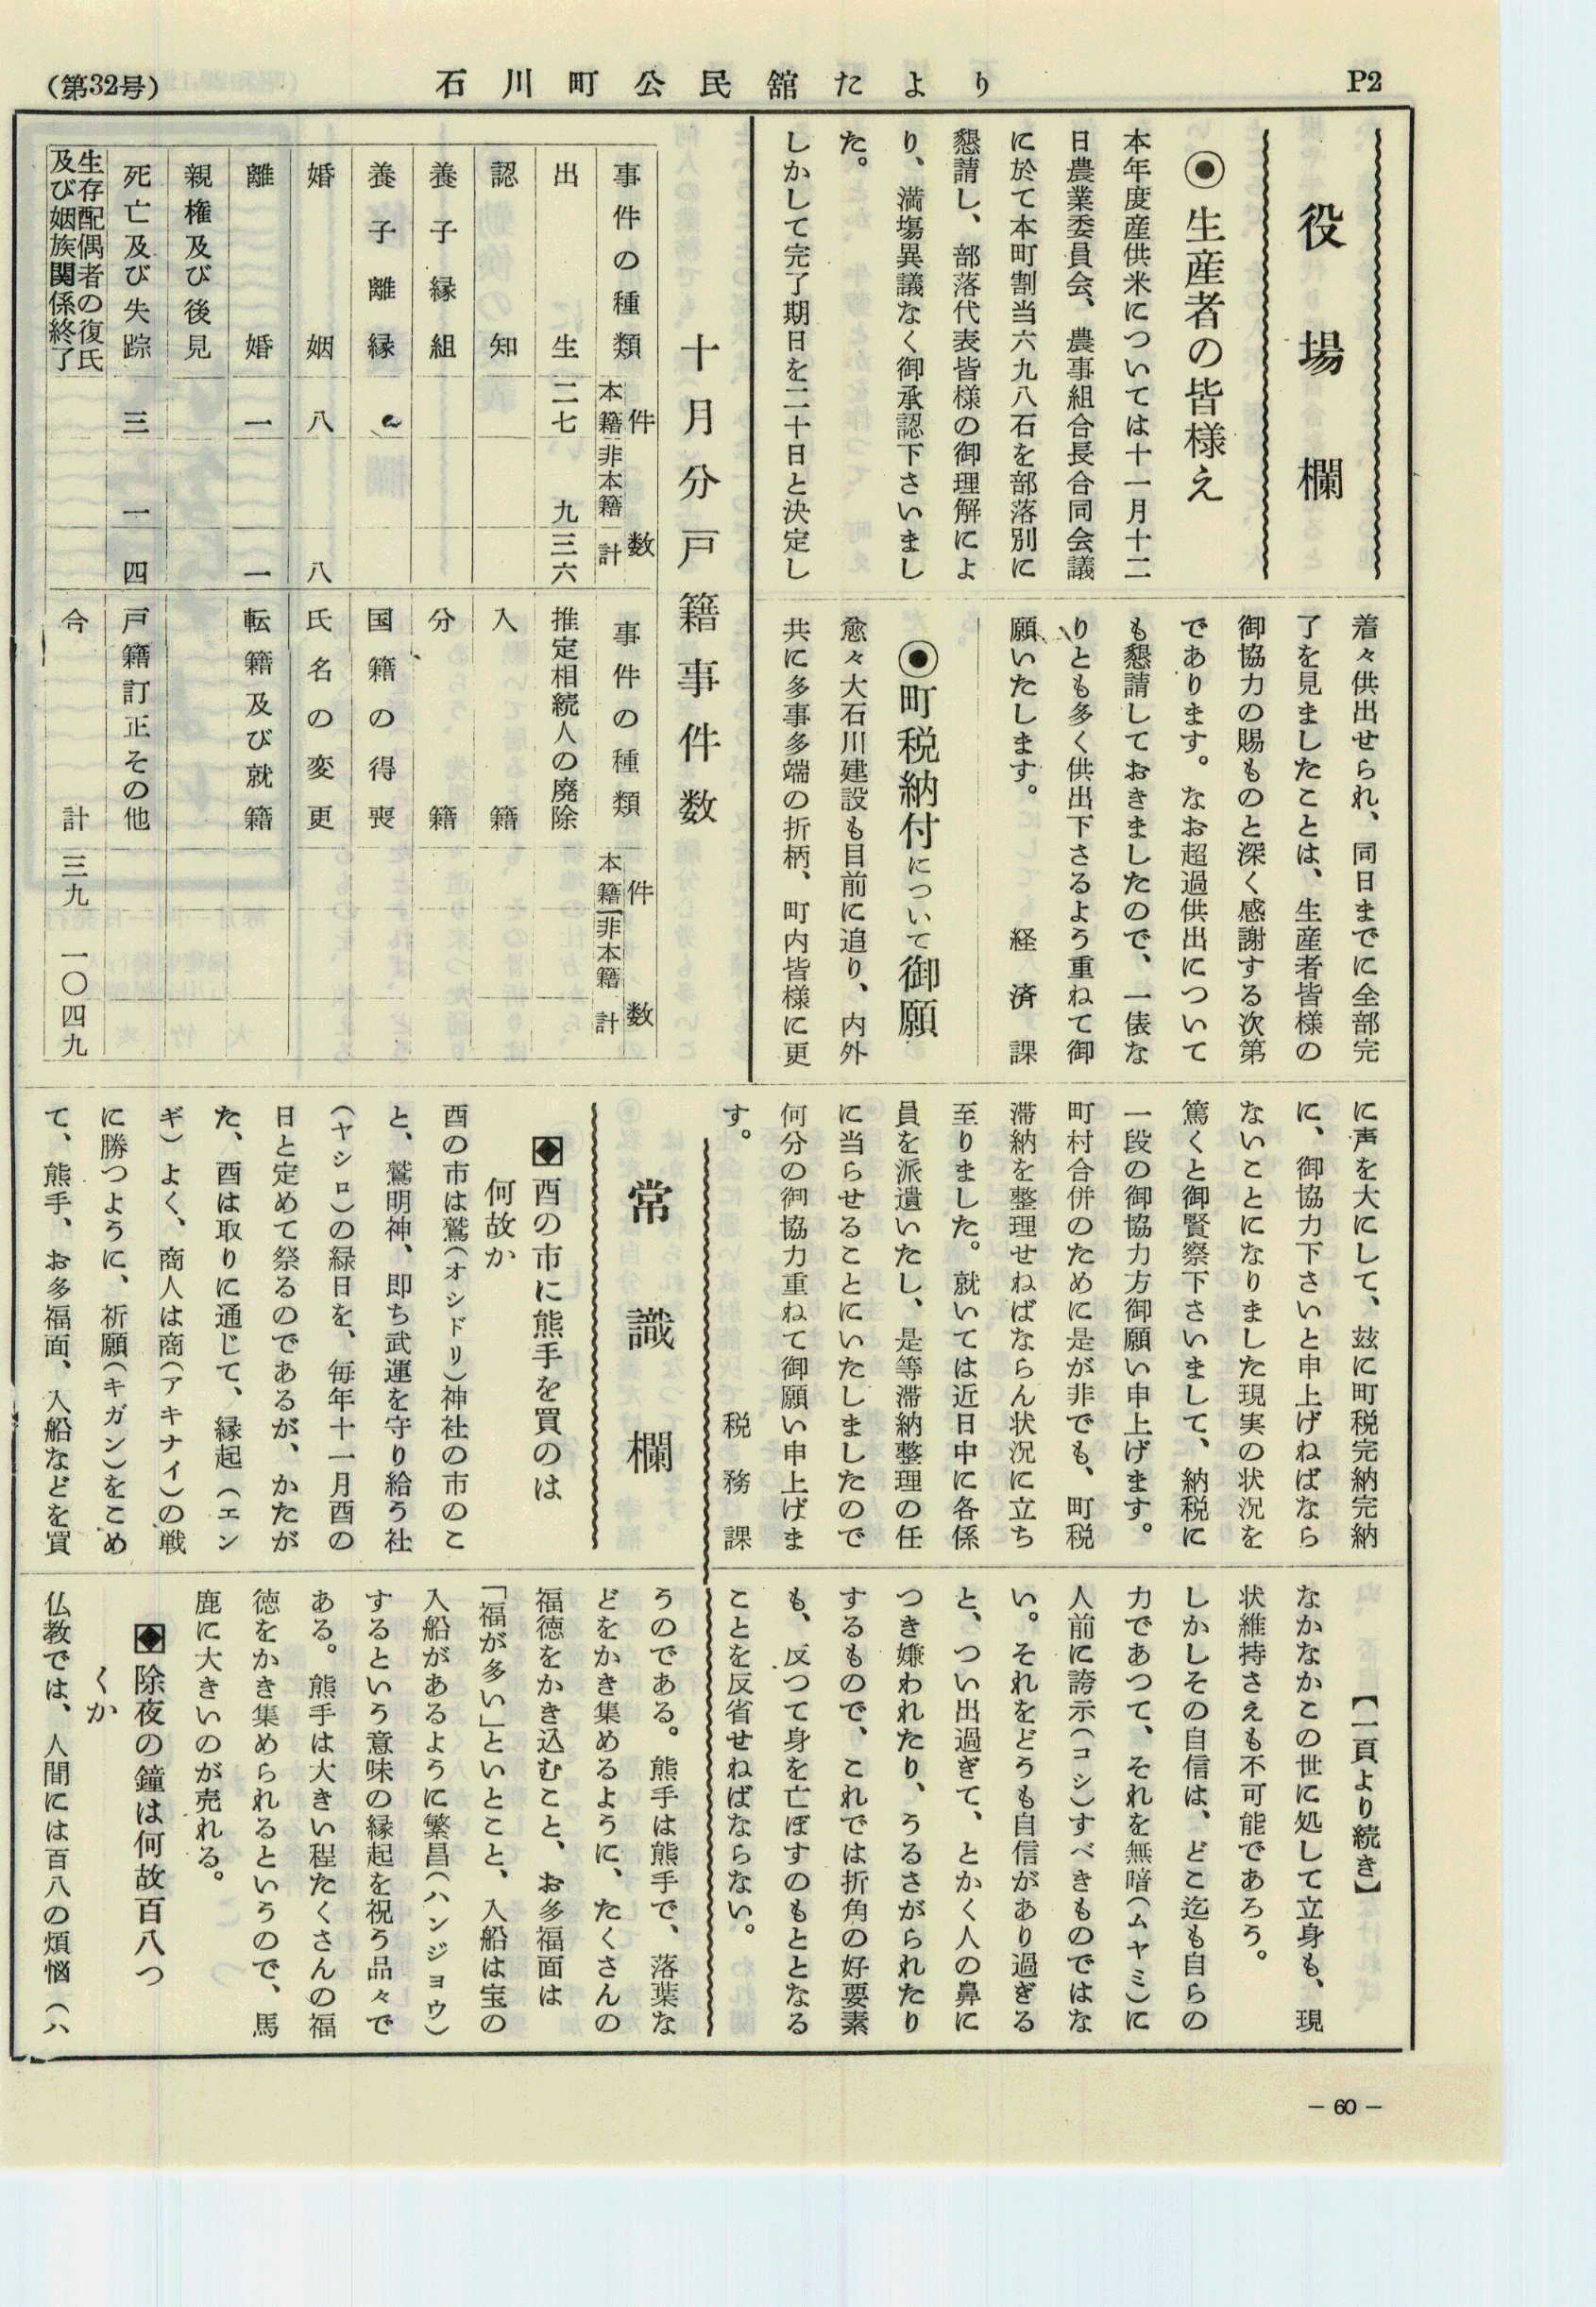 (第32号)
石川町公民舘たより
P2
役場欄
◉生産者の皆様え
本年度産供米については十一月十二
日農業委員会、農事組合長合同会議
に於て本町割当六九八石を部落別に
懇請し、部落代表皆様の御理解によ
り、満場異議なく御承認下さいまし
た。
しかして完了期日を二十日と決定し
着々供出せられ、同日までに全部完
了を見ましたことは、生産者皆様の
御協力の賜ものと深く感謝する次第
であります。なお超過供出について
も懇請しておきましたので、一俵な
りとも多く供出下さるよう重ねて御
願いたします。
経済課
◉町税納付について御願
愈々大石川建設も目前に追り、内外
共に多事多端の折柄、町内皆様に更
に声を大にして、玆に町税完納完納
に、御協力下さいと申上げねばなら
ないことになりました現実の状況を
篤くと御賢察下さいまして、納税に
一段の御協力方御願い申上げます。
町村合併のために是が非でも、町税
滞納を整理せねばならん状況に立ち
至りました。就いては近日中に各係
員を派遣いたし、是等滞納整理の任
に当らせることにいたしましたので
何分の御協力重ねて御願い申上げま
す。
税務課
十月分戸籍事件数
事件の種類 件数 本籍 非本籍 計
出生 二七 九 三六
認知
養子縁組
養子離縁
婚姻 八 八
離婚 一 一
親権及び後見
死亡及び失踪 三 一 四
生存配偶者の復氏
及び姻族関係終了
事件の種類 件数 本籍 非本籍 計
推定相続人の廃除
入籍
分籍
国籍の得喪
氏名の変更
転籍及び就籍
戸籍訂正その他
合計 三九 一〇 四九
常識欄
酉の市に熊手を買のは
何故か
酉の市は鷲(オシドリ)神社の市のこ
と、鷲明神、即ち武運を守り給う社
(ヤシロ)の緑日を、毎年十一月酉の
日と定めて祭るのであるが、かたが
た、酉は取りに通じて、縁起(エン
ギ)よく、商人は商(アキナイ)の戦
に勝つように、祈願(キガン)をこめ
て、熊手、お多福面、入船などを買
うのである。熊手は熊手で、落葉な
どをかき集めるように、たくさんの
福徳をかき込むこと、お多福面は
「福が多い」といとこと、入船は宝の
入船があるように繁昌(ハンジョウ)
するという意味の縁起を祝う品々で
ある。熊手は大きい程たくさんの福
徳をかき集められるというので、馬
鹿に大きいのが売れる。
除夜の鐘は何故百八つ
くか
仏教では、人間には百八の煩悩(ハ
【一頁より続き】
なかなかこの世に処して立身も、現
状維持さえも不可能であろう。
しかしその自信は、どこ迄も自らの
力であつて、それを無暗(ムヤミ)に
人前に誇示(コシ)すべきものではな
い。それをどうも自信があり過ぎる
と、つい出過ぎて、とかく人の鼻に
つき嫌われたり、うるさがられたり
するもので、これでは折角の好要素
も、反つて身を亡ぼすのもととなる
ことを反省せねばならない。
- 60 -